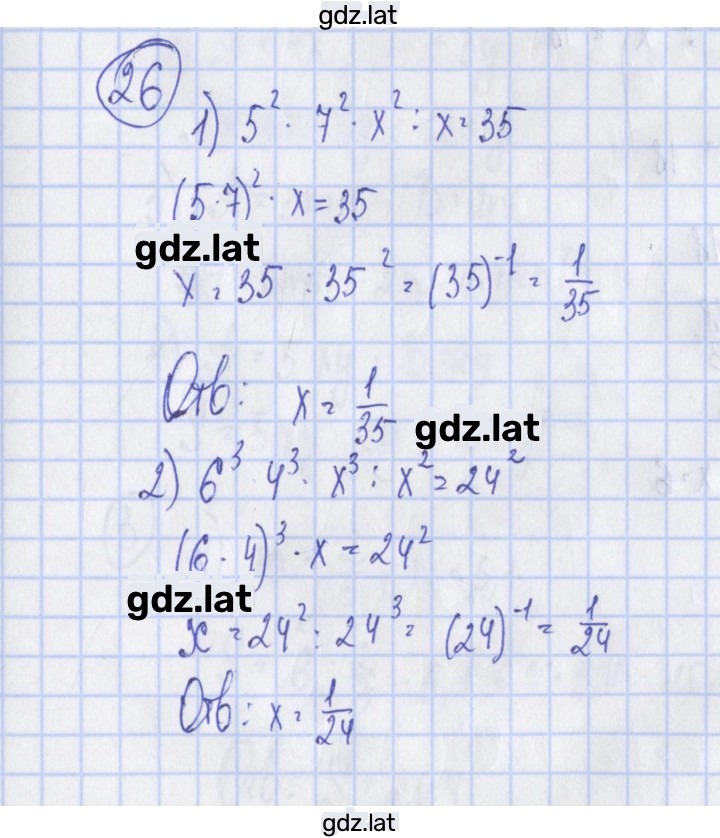 gdz.lat
26
1) 5² · 7² · x² : x = 35
(5·7)² · x = 35
gdz.lat
x = 35 : 35² = (35)⁻¹ = 1/35
Отв: x = 1/35
gdz.lat
2) 6³ · 4³ · x³ : x² = 24²
(6 · 4)³ · x = 24²
gdz.lat
x = 24² : 24³ = (24)⁻¹ = 1/24
Отв: x = 1/24
gdz.lat